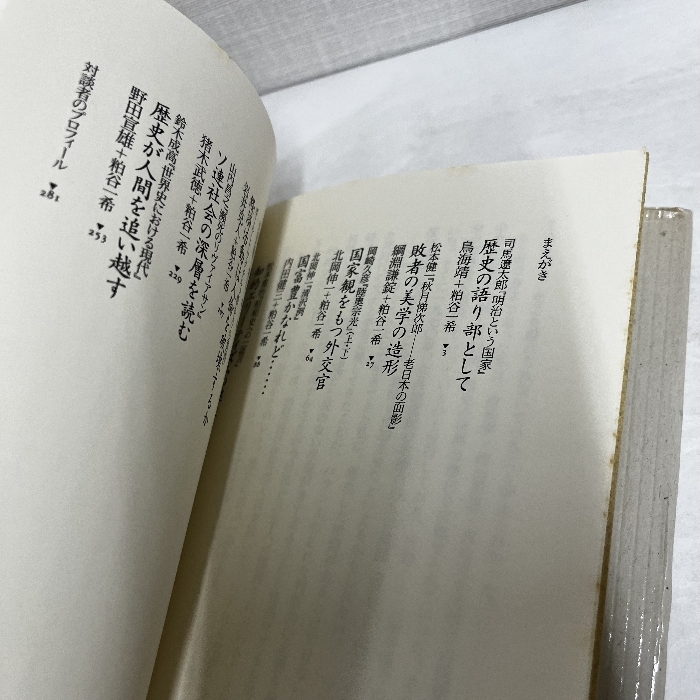 まえがき
司馬遼太郎『明治という国家』
歴史の語り部として
鳥海靖＋粕谷一希 ▼3
松本健一『秋月悌次郎――老日本の面影』
敗者の美学の造形
綱淵謙錠＋粕谷一希 ▼27
岡崎久彦『陸奥宗光』(上・下)
国家観をもつ外交官
北岡伸一＋粕谷一希 ▼64
北岡伸一『清沢洌』
国富豊かなれど……
内田健三＋粕谷一希
ソ連社会の深層を読む
猪木武徳＋粕谷一希 ▼229
鈴木成高『世界史における現代』
歴史が人間を追い越す
野田宣雄＋粕谷一希 ▼253
対談者のプロフィール ▼281